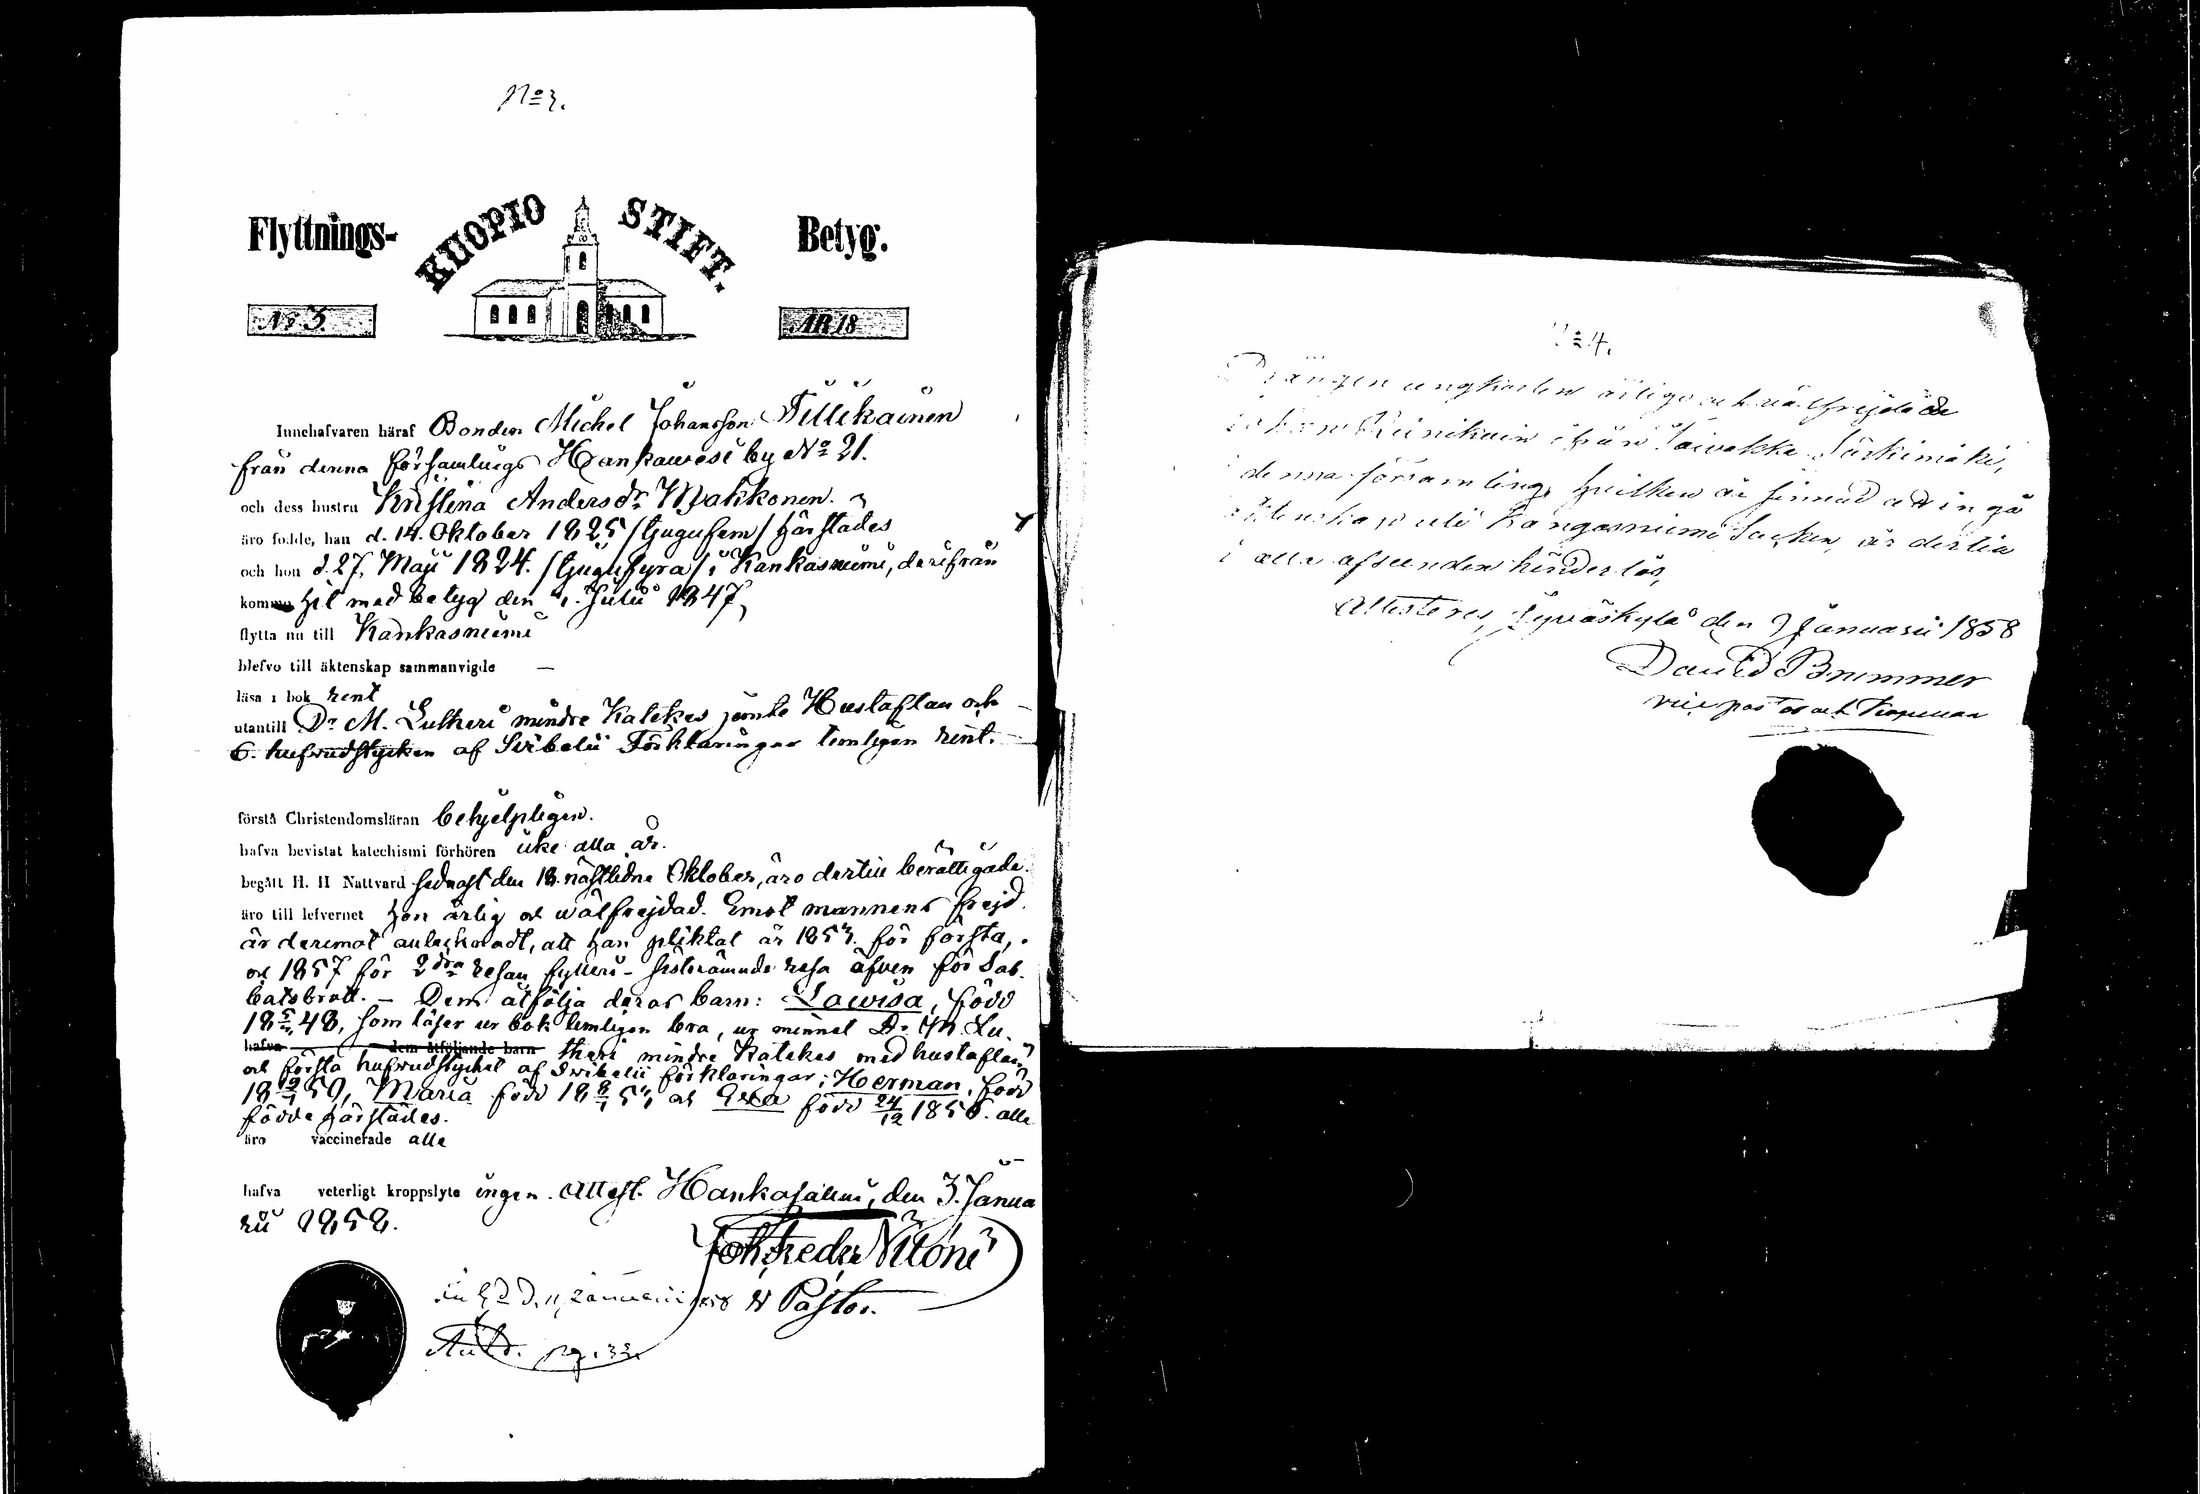 No 3.
Flyttnings- KUOPIO STIFT. Betyg.
No 3. ÅR 18
Innehafvaren häraf Bonden Michel Johansson Tillikainen
från denna församlings Hankavesi by No 21.
och dess hustru Kristina Andersdr Makkonen.
äro födde, han d. 14. Oktober 1825 /tjugufem/ härstädes
och hon d. 27. Maji 1824. /tjugufyra/ i Kankasniemi, derifrån
komne hit med betyg den 1. Julii 1847,
flytta nu till Kankasniemi
blefvo till äktenskap sammanvigde —
läsa i bok rent
utantill Dr M. Lutheri mindre Katekes jemte Hustaflan och
6. hufvudstycken af Svibelii Förklaringar temligen rent.
förstå Christendomsläran behjelpligen.
hafva bevistat katechismi förhören icke alla år.
begått H. H Nattvard sednast den 18. nästledne Oktober, äro dertill berättigade.
äro till lefvernet hon ärlig och wälfrejdad. Emot mannens frejd
är deremot anteknadt, att han pliktat år 1853. för första,
och 1857 för 2dra resan fylleri- sistnämnde resa äfven för Sab-
batsbrott. — Dem åtfölja deras barn: Lovisa, född
48, som läser ur bok temligen bra, ur minnet Dr M. Lu-
hafva dem åtföljande barn theri mindre Katekes med hustaflan
och första hufvudstycket af Svibelii förklaringar; Herman, född
Maria född och Eva född 24/12 1856. alla
födde härstädes.
äro vaccinerade alla
hafva veterligt kroppslyte ingen. Attest. Hankasalmi, den 3. Janua
rii 1858.
Joh. Fredr.
Pastor.
d. 11 Januarii 1858
pg. 33.
No 4.
Drängen ungkarlen ärlige och välfrejdade
Johan Reinikain ifrån Toivakka
i denna församling, hvilken är sinnad at ingå
äktenskap uti Kangasniemi Socken, är dertill
i alla afseenden hinderlös,
Attesteres, Jyväskylä den 9 Januarii 1858
David Brummer
vice pastor och Kapellan